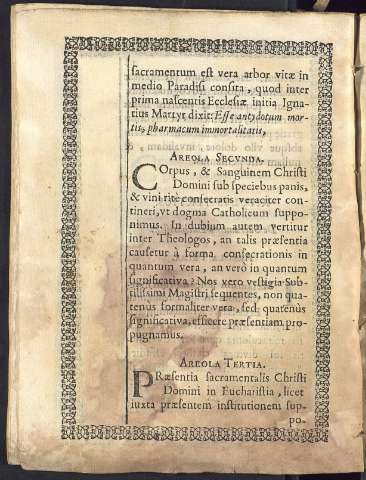 sacramentum est vera arbor vitæ in
medio Paradisi consita, quod inter
prima nascentis Ecclesiæ initia Igna-
tius Martyr dixit: Esse antydotum mor-
tis, pharmacum immortalitatis,
AREOLA SECVNDA.
Corpus, & Sanguinem Christi
Domini sub speciebus panis,
& vini ritè consecratis veraciter con-
tineri, vt dogma Catholicum suppo-
nimus. In dubium autem vertitur
inter Theologos, an talis præsentia
causetur à forma consecrationis in
quantum vera, an verò in quantum
significativa? Nos vero vestigia Sub-
tilissimi Magistri sequentes, non qua-
tenùs formaliter vera, sed quatenùs
significativa, efficere præsentiam pro-
pugnamus.
AREOLA TERTIA.
PRæsentia sacramentalis Christi
Domini in Eucharistia, licet
iuxta præsentem institutionem sup-
po-